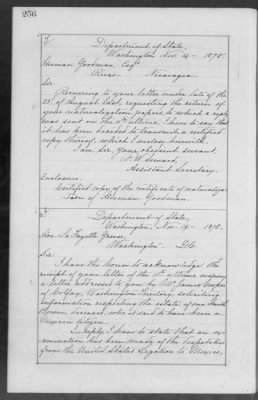 256
Department of State,
Washington Nov. 14 - 1878.
Herman Goodman, Esq.
Rivas - Nicaragua
Sir:
Referring to your letter under date of the
of August last, requesting the return of
your naturalization papers, to which a reply
was sent on the ultimo, I have to say that
it has been decided to transmit a certified
copy thereof, which I enclose herewith.
I am Sir, your obedient servant,
F. W. Seward,
Assistant Secretary.
Enclosure.
Certified copy of the certificate of naturaliza-
tion of Herman Goodman.
Department of State,
Washington, Nov. 19 - 1878.
Hon. La Fayette Grover,
Washington D.C.
Sir:
I have the honor to acknowledge the
receipt of your letter of the ultimo, enclosing
a letter addressed to you by James Cooper
of Colfax, Washington Territory, soliciting
information respecting the estate of one
Brown, deceased, who is said to have been a
Mexican citizen.
In reply, I have to state that an ex-
amination has been made of the despatches
from the United States Legation to Mexico,